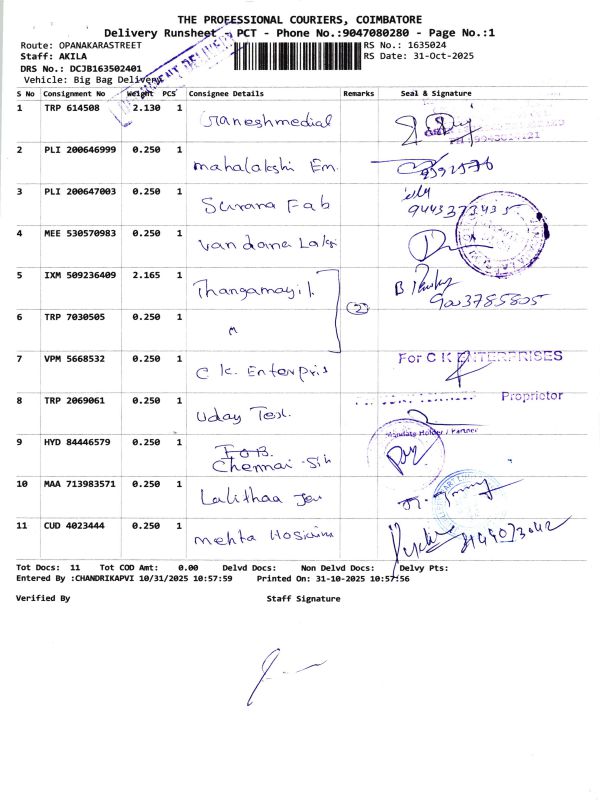 THE PROFESSIONAL COURIERS, COIMBATORE
Delivery Runsheet - PCT - Phone No.:9047080280 - Page No.:1
Route: OPANAKARASTREET RS No.: 1635024
Staff: AKILA RS Date: 31-Oct-2025
DRS No.: DCJB163502401
Vehicle: Big Bag Delivery
S No Consignment No Weight PCS Consignee Details Remarks Seal & Signature
1 TRP 614508 2.130 1 Ganeshmedial
2 PLI 200646999 0.250 1 mahalakshi Em.
3 PLI 200647003 0.250 1 Surana Fab 9445373435
4 MEE 530570983 0.250 1 Vandana
5 IXM 509236409 2.165 1 Thangamayil 2 9003785805
6 TRP 7030505 0.250 1 "
7 VPM 5668532 0.250 1 C K. Enterpris For C K ENTERPRISES
Proprietor
8 TRP 2069061 0.250 1 Uday Tex.
Mandate Holder / Partner
9 HYD 84446579 0.250 1 Chennai Silk
10 MAA 713983571 0.250 1 Lalithaa Jew
11 CUD 4023444 0.250 1 mehta
Tot Docs: 11 Tot COD Amt: 0.00 Delvd Docs: Non Delvd Docs: Delvy Pts:
Entered By :CHANDRIKAPVI 10/31/2025 10:57:59 Printed On: 31-10-2025 10:57:56
Verified By Staff Signature